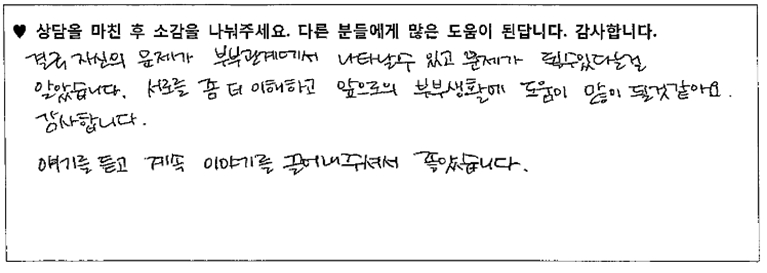 ♥ 상담을 마친 후 소감을 나눠주세요. 다른 분들에게 많은 도움이 된답니다. 감사합니다.
결국 자신의 문제가 부부관계에서 나타날수 있고 문제가 될수있다는걸
알았습니다. 서로를 좀 더 이해하고 앞으로의 부부생활에 도움이 많이 될것같아요.
감사합니다.
얘기를 듣고 계속 이야기를 끌어내주셔서 좋았습니다.